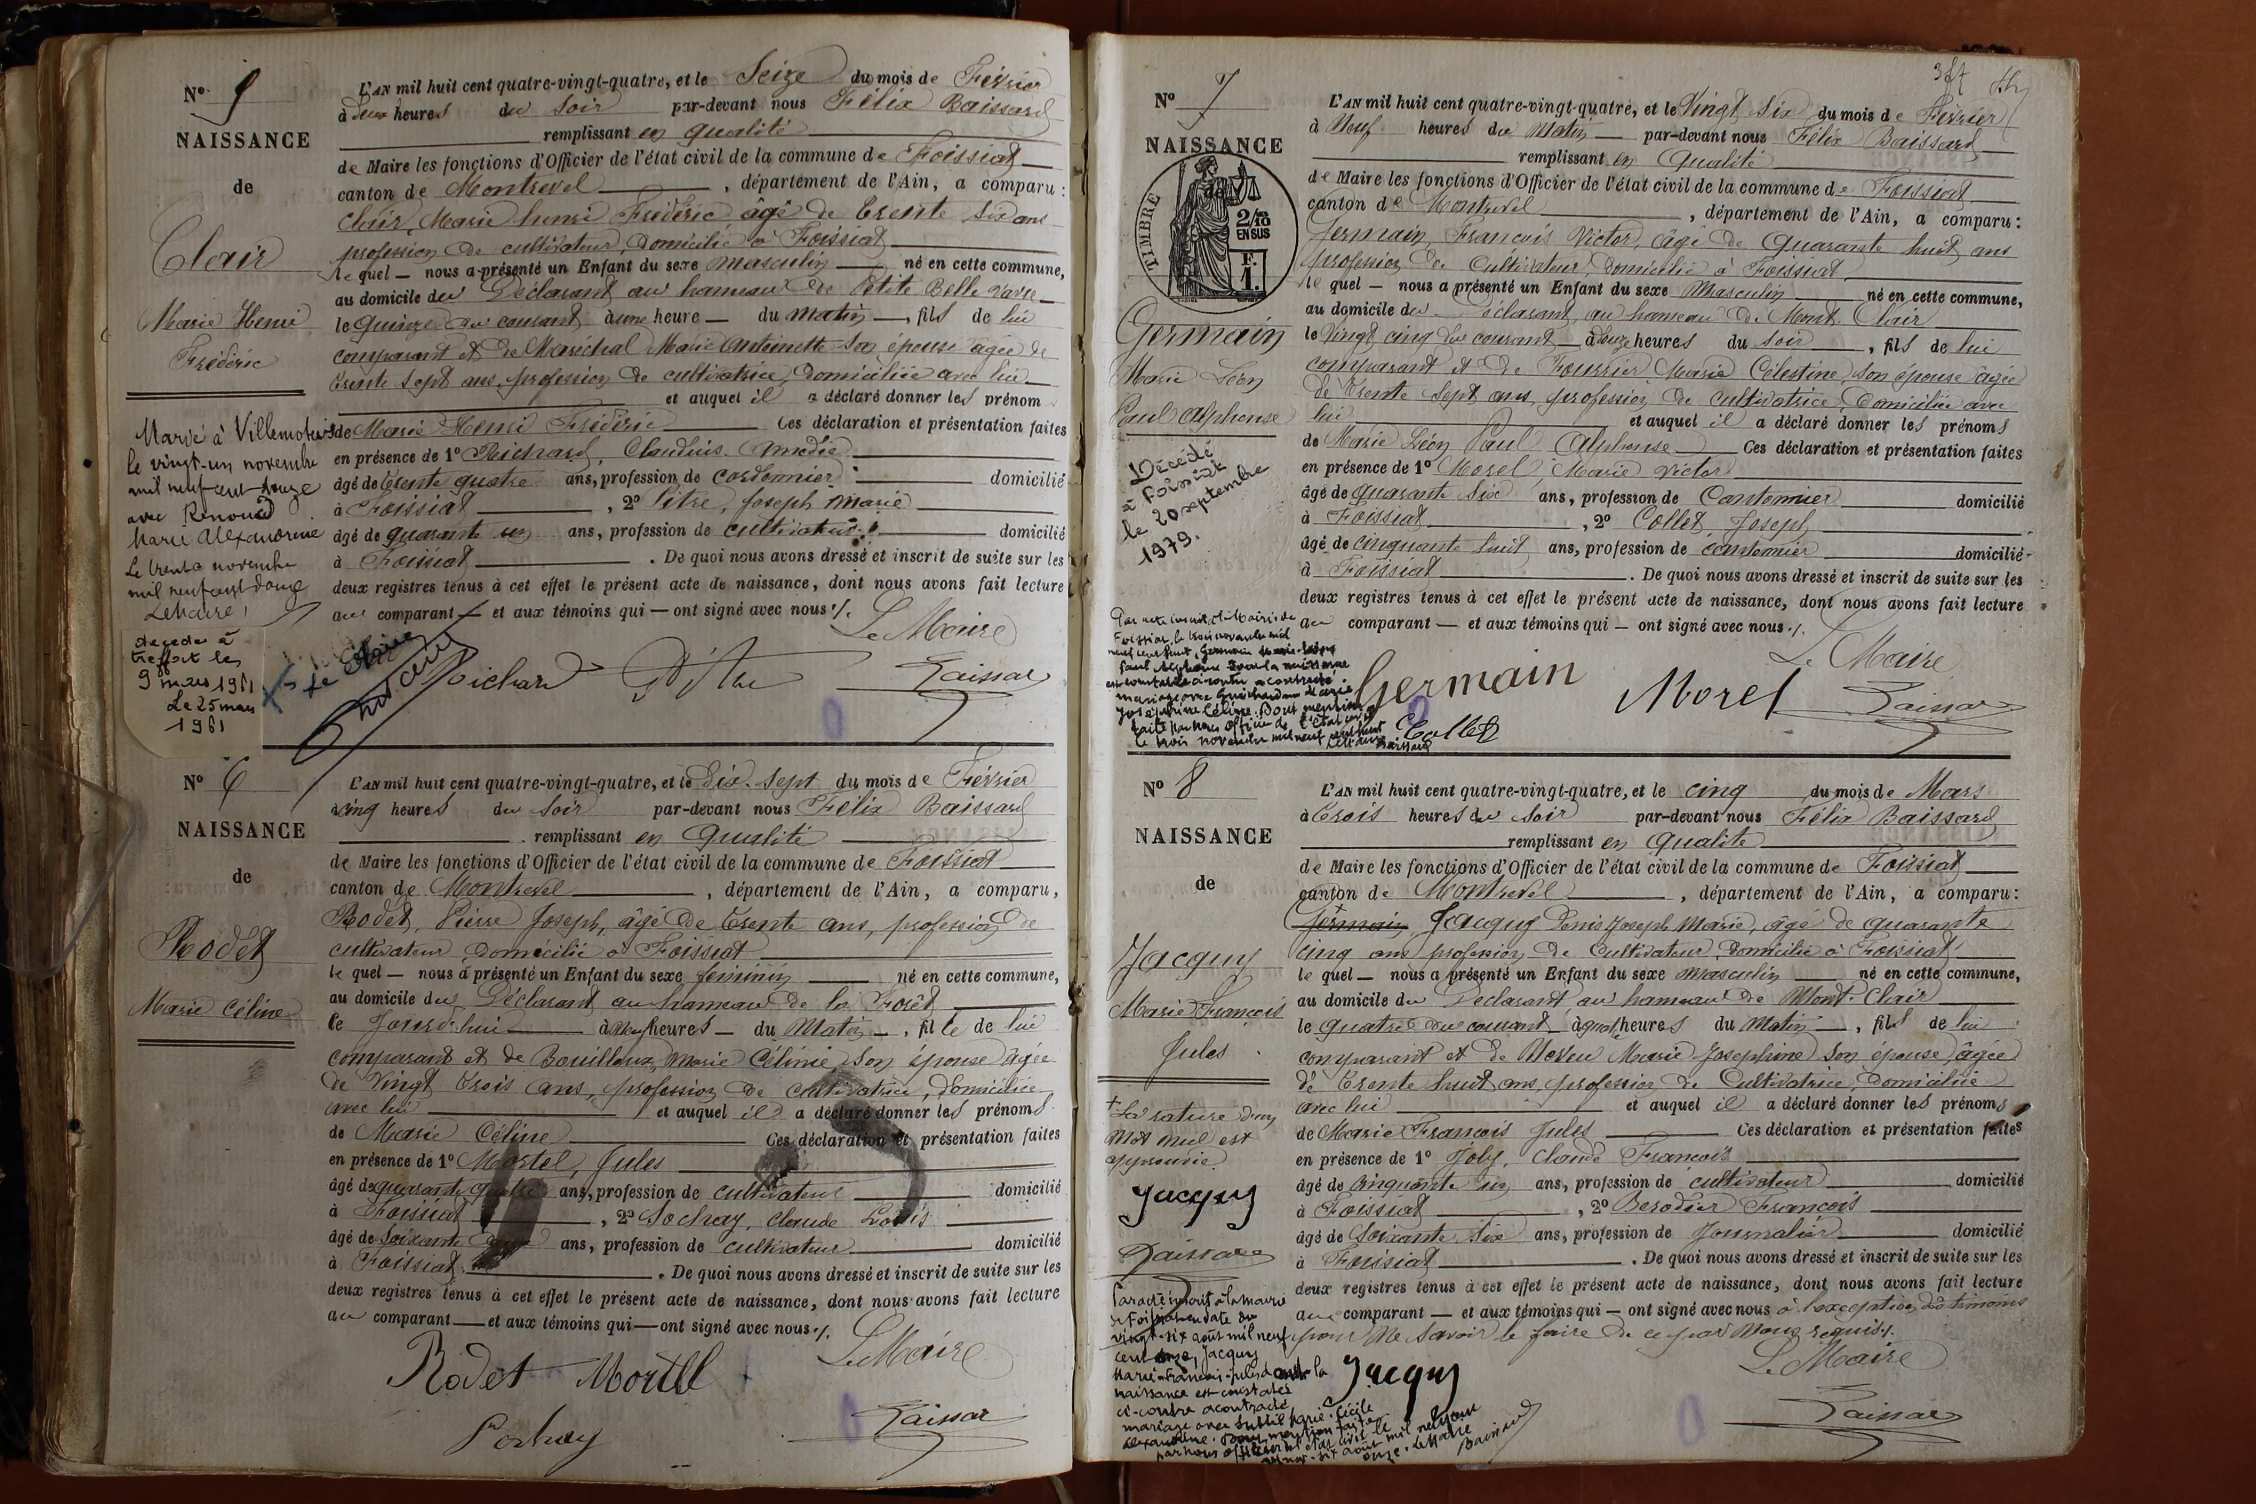 N° 5
NAISSANCE
de
Clair
Marie Henri
Frédéric
Marié à Villemotier
le vingt-un novembre
mil neuf cent douze
avec Renoud
Marie Alexandrine
Le trente novembre
mil neuf cent douze
Le Maire,
décédé à
treffort les
9 mars 1961
Le 25 mars
1961
L'AN mil huit cent quatre-vingt-quatre, et le Seize du mois de Février
à deux heures du soir par-devant nous Félix Baissard
remplissant en qualité
de Maire les fonctions d'Officier de l'état civil de la commune de Foissiat
canton de Montrevel , département de l'Ain, a comparu :
Clair, Marie henri Frédéric âgé de trente six ans
profession de cultivateur, domicilié à Foissiat
le quel — nous a présenté un Enfant du sexe masculin né en cette commune,
au domicile du Déclarant au hameau de Petite Belle
le quinze du courant à une heure — du matin —, fils de lui
comparant et de Maréchal Marie Antoinette son épouse âgée de
trente sept ans, profession de cultivatrice, domiciliée avec lui
et auquel il a déclaré donner les prénom
de Marie Henri Frédéric Ces déclaration et présentation faites
en présence de 1° Richard, Claudius Amédée
âgé de trente quatre ans, profession de cordonnier domicilié
à Foissiat , 2° Pitre, Joseph Marie
âgé de quarante un ans, profession de cultivateur domicilié
à Foissiat . De quoi nous avons dressé et inscrit de suite sur les
deux registres tenus à cet effet le présent acte de naissance, dont nous avons fait lecture
au comparant — et aux témoins qui — ont signé avec nous ./.
Le Maire
Richard Pitre Baissard
N° 6
NAISSANCE
de
Rodet
Marie Céline
L'AN mil huit cent quatre-vingt-quatre, et le Dix-Sept du mois de Février
à cinq heures du soir par-devant nous Félix Baissard
remplissant en qualité
de Maire les fonctions d'Officier de l'état civil de la commune de Foissiat
canton de Montrevel , département de l'Ain, a comparu,
Rodet, Pierre Joseph, âgé de trente ans, profession de
cultivateur, domicilié à Foissiat
le quel — nous a présenté un Enfant du sexe féminin né en cette commune,
au domicile du Déclarant, au hameau de la Forêt
le Jourd'hui à neuf heures — du Matin —, fille de lui
comparant et de Bouilloux, Marie Célinie, son épouse âgée
de Vingt trois ans, profession de cultivatrice, domiciliée
avec lui et auquel il a déclaré donner les prénoms
de Marie Céline Ces déclaration et présentation faites
en présence de 1° Mortel, Jules
âgé de quarante quatre ans, profession de cultivateur domicilié
à Foissiat , 2° Sochay, Claude Louis
âgé de soixante ans, profession de cultivateur domicilié
à Foissiat . De quoi nous avons dressé et inscrit de suite sur les
deux registres tenus à cet effet le présent acte de naissance, dont nous avons fait lecture
au comparant — et aux témoins qui — ont signé avec nous ./.
Le Maire
Rodet Mortel
Sochay Baissard
N° 7
NAISSANCE
de
TIMBRE
2/10 EN SUS
F. 1.
Germain
Marie Léon
Paul Alphonse
Décédé
à Foissiat
le 20 septembre
1979.
Par acte inscrit à la Mairie de
Foissiat, le trois novembre mil
neuf cent huit, Germain Marie Léon
Paul Alphonse dont la naissance
est constatée ci-contre a contracté
mariage avec Guichardan Marie
Joséphine Céline. Dont mention
faite par nous Officier de l'état civil
le trois novembre mil neuf cent huit
Le Maire
Baissard
L'AN mil huit cent quatre-vingt-quatre, et le Vingt Six du mois de Février
à Neuf heures du Matin par-devant nous Félix Baissard
remplissant en Qualité
de Maire les fonctions d'Officier de l'état civil de la commune de Foissiat
canton de Montrevel , département de l'Ain, a comparu :
Germain, François Victor, âgé de Quarante huit ans
profession de Cultivateur, domicilié à Foissiat
le quel — nous a présenté un Enfant du sexe Masculin né en cette commune,
au domicile du Déclarant, au hameau de Mont Clair
le Vingt cinq du courant à onze heures du soir , fils de lui
comparant et de Fourrier Marie Célestine, son épouse âgée
de trente sept ans, profession de cultivatrice, domiciliée avec
lui et auquel il a déclaré donner les prénoms
de Marie Léon Paul Alphonse Ces déclaration et présentation faites
en présence de 1° Morel Marie Victor
âgé de quarante six ans, profession de Cantonnier domicilié
à Foissiat , 2° Collet, Joseph
âgé de cinquante huit ans, profession de cantonnier domicilié
à Foissiat . De quoi nous avons dressé et inscrit de suite sur les
deux registres tenus à cet effet le présent acte de naissance, dont nous avons fait lecture
au comparant — et aux témoins qui — ont signé avec nous ./.
Le Maire
Germain Morel Baissard
Collet
N° 8
NAISSANCE
de
Jacquy
Marie François
Jules
+ La rature d'un
mot nul est
approuvée
Jacquy
Baissard
Par acte inscrit à la mairie
de Foissiat en date du
vingt-six août mil neuf
cent onze, Jacquy
Marie-François-Jules dont la
naissance est constatée
ci-contre a contracté
mariage avec Subtil Marie-Cécile
Alexandrine. Dont mention faite
par nous officier de l'état civil le
vingt-six août mil neuf cent
onze. Le Maire
Baissard
L'AN mil huit cent quatre-vingt-quatre, et le cinq du mois de Mars
à trois heures du soir par-devant nous Félix Baissard
remplissant en Qualité
de Maire les fonctions d'Officier de l'état civil de la commune de Foissiat
canton de Montrevel , département de l'Ain, a comparu :
Germain, Jacquy Denis Joseph Marie, âgé de quarante
cinq ans profession de Cultivateur, domicilié à Foissiat
le quel — nous a présenté un Enfant du sexe masculin né en cette commune,
au domicile du Déclarant au hameau de Mont-Clair
le quatre du courant à quatre heures du Matin , fils de lui
comparant et de Neveu Marie Josephine son épouse, âgée
de trente huit ans, profession de Cultivatrice, domiciliée
avec lui et auquel il a déclaré donner les prénoms
de Marie François Jules Ces déclaration et présentation faites
en présence de 1° Joly, Claude François
âgé de cinquante un ans, profession de cultivateur domicilié
à Foissiat , 2° Berodier François
âgé de soixante six ans, profession de Journalier domicilié
à Foissiat . De quoi nous avons dressé et inscrit de suite sur les
deux registres tenus à cet effet le présent acte de naissance, dont nous avons fait lecture
au comparant — et aux témoins qui — ont signé avec nous à l'exception des témoins
pour ne savoir le faire de ce par Nous requis ./.
Le Maire
Jacquy
Baissard